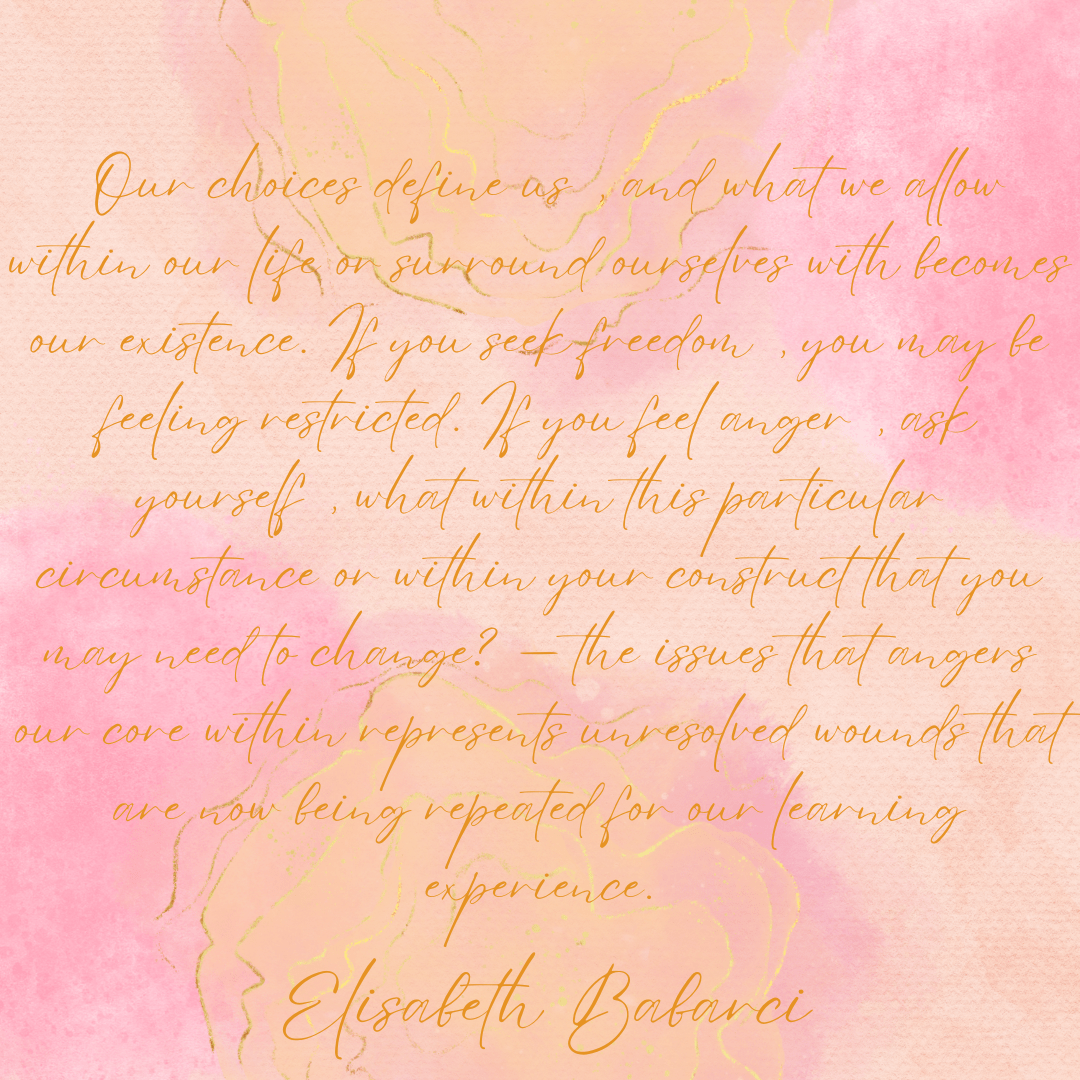 Our choices define us , and what we allow
within our life or surround ourselves with becomes
our existence. If you seek freedom , you may be
feeling restricted. If you feel anger , ask
yourself , what within this particular
circumstance or within your construct that you
may need to change? – the issues that angers
our core within represents unresolved wounds that
are now being repeated for our learning
experience.
Elisabeth Babarci